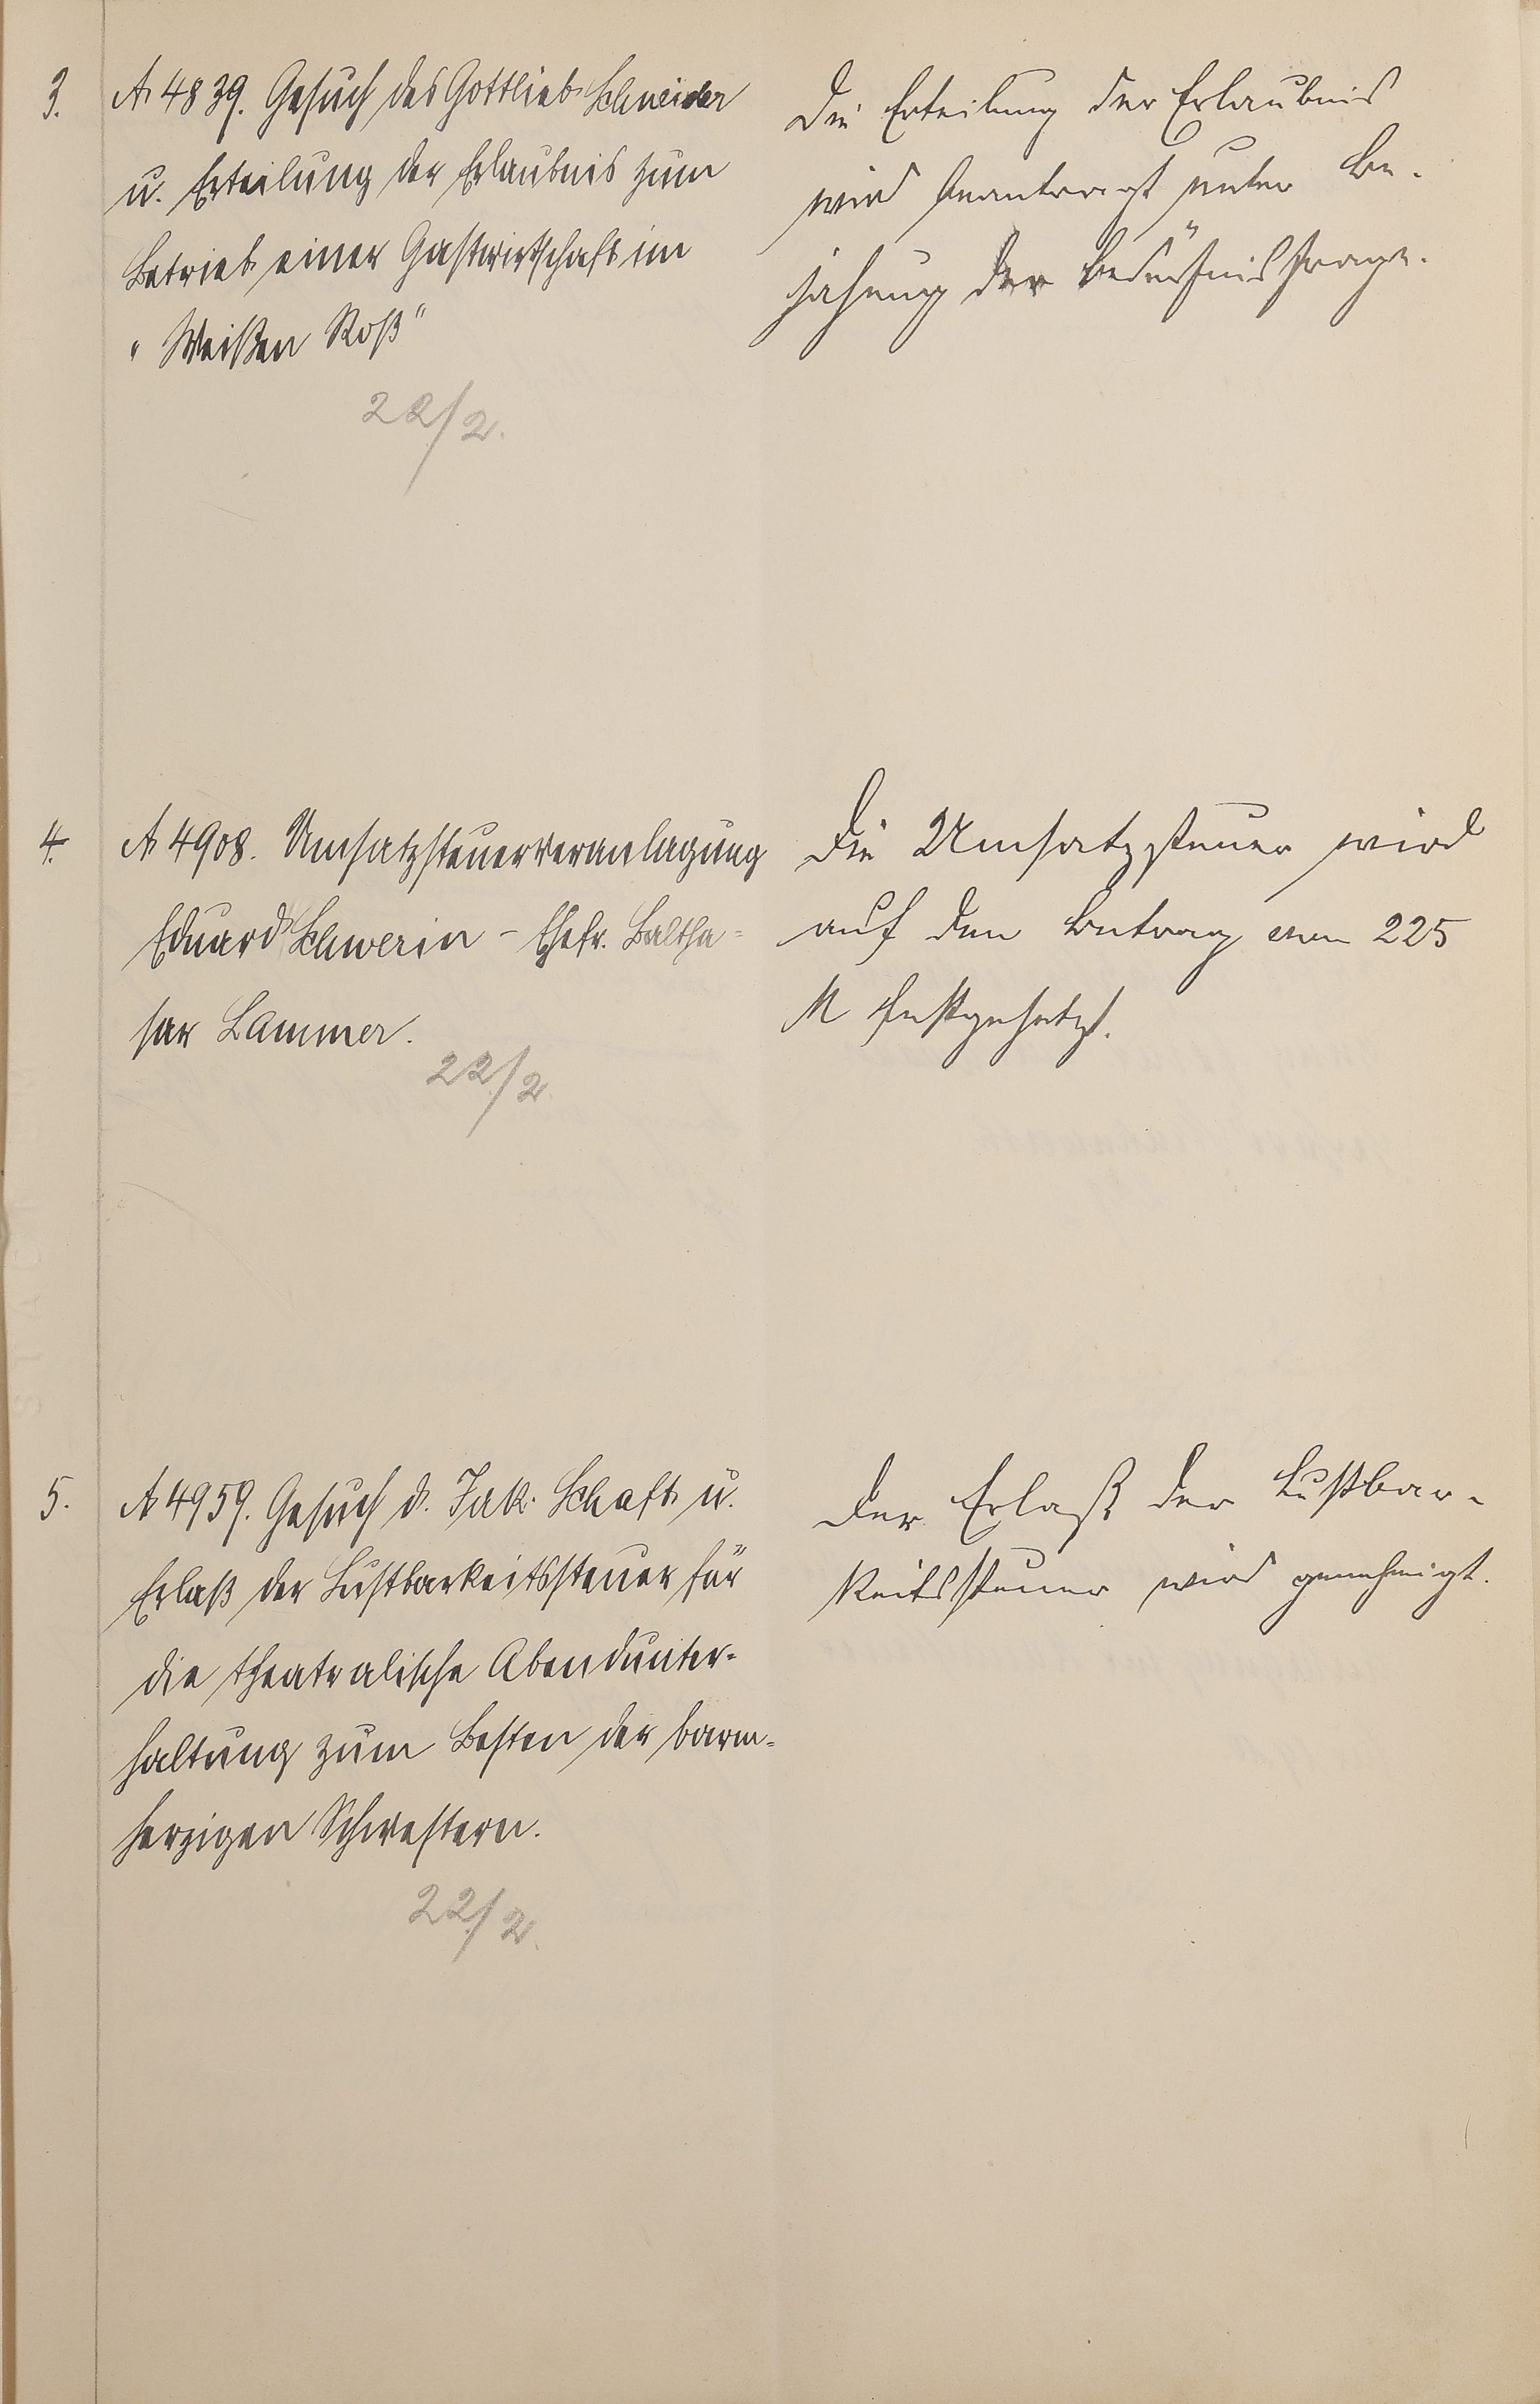 3.
A 4839. Gesuch des Gottlieb Schneider
u. Erteilung der Erlaubnis zum
Betrieb einer Gastwirtschaft im
"Weißen Roß"
22/2.
Die Erteilung der Erlaubnis
wird beantragt unter Be-
jahung der Bedürfnisfrage.
4.
A 4908. Umsatzsteuerveranlagung
Eduard Schwerin - Ehefr. Baltha=
sar Lammer.
22/2.
Die Umsatzsteuer wird
auf den Betrag von 225
M festgesetzt.
5.
A 4959. Gesuch d. Jak. Schaft u.
Erlaß der Lustbarkeitssteuer für
die theatralische Abendunter=
haltung zum Besten der barm=
herzigen Schwestern.
22/2.
Der Erlaß der Lustbar-
keitssteuer wird genehmigt.